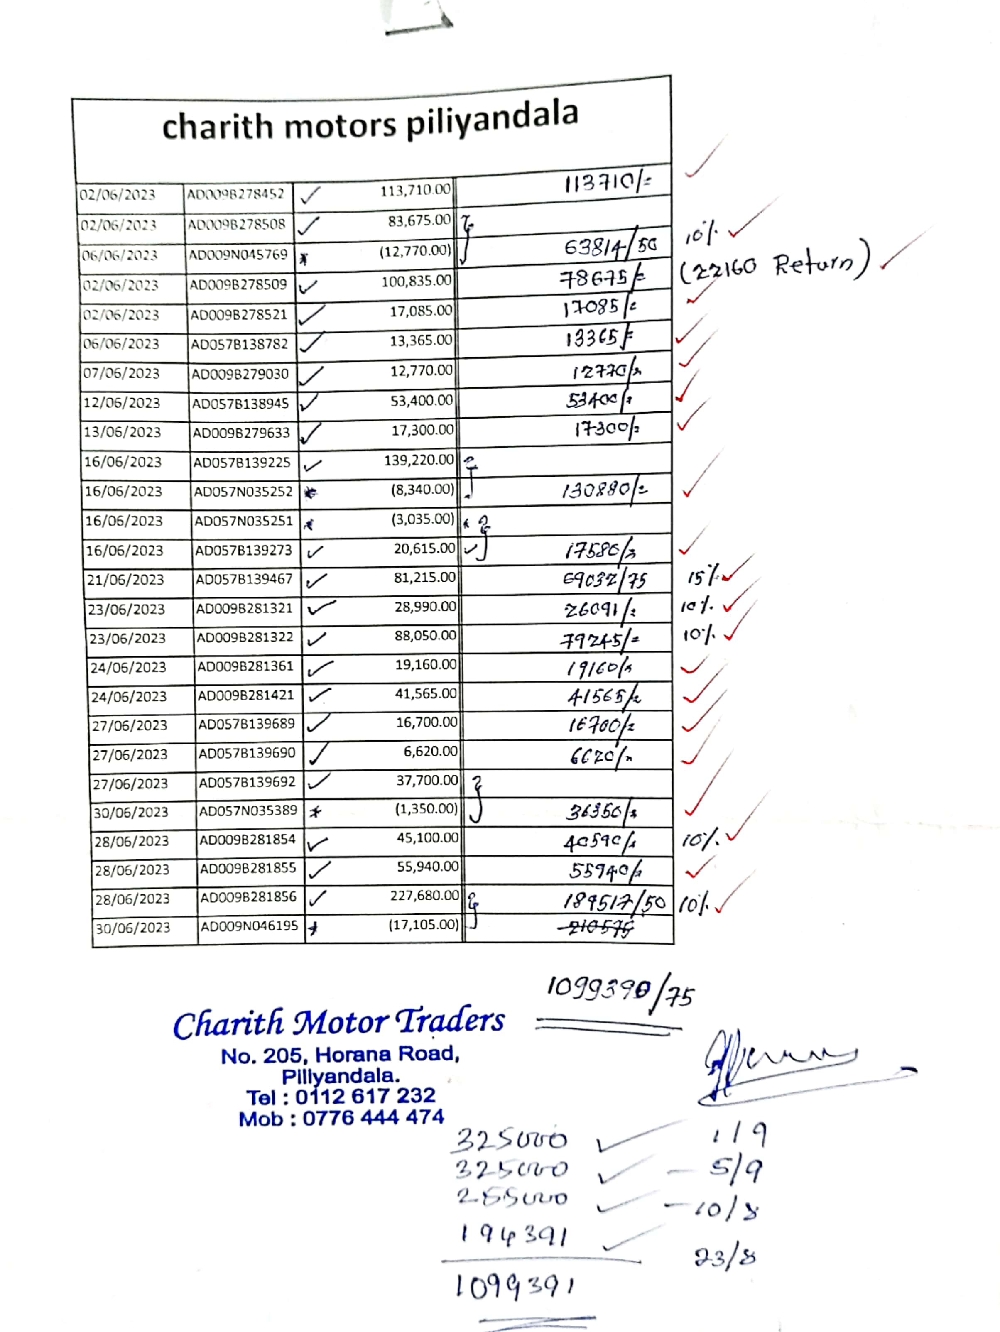 charith motors piliyandala
02/06/2023 AD009B278452 ✓ 113,710.00 113710/= ✓
02/06/2023 AD009B278508 ✓ 83,675.00
06/06/2023 AD009N045769 * (12,770.00) 63814/50 10% ✓
02/06/2023 AD009B278509 ✓ 100,835.00 78675/= (22160 Return) ✓
02/06/2023 AD009B278521 ✓ 17,085.00 17085/= ✓
06/06/2023 AD057B138782 ✓ 13,365.00 13365/= ✓
07/06/2023 AD009B279030 ✓ 12,770.00 12770/= ✓
12/06/2023 AD057B138945 ✓ 53,400.00 53400/= ✓
13/06/2023 AD009B279633 ✓ 17,300.00 17300/= ✓
16/06/2023 AD057B139225 ✓ 139,220.00
16/06/2023 AD057N035252 * (8,340.00) 130880/= ✓
16/06/2023 AD057N035251 * (3,035.00) *
16/06/2023 AD057B139273 ✓ 20,615.00 ✓ 17580/= ✓
21/06/2023 AD057B139467 ✓ 81,215.00 69032/75 15% ✓
23/06/2023 AD009B281321 ✓ 28,990.00 26091/= 10% ✓
23/06/2023 AD009B281322 ✓ 88,050.00 79245/= 10% ✓
24/06/2023 AD009B281361 ✓ 19,160.00 19160/= ✓
24/06/2023 AD009B281421 ✓ 41,565.00 41565/= ✓
27/06/2023 AD057B139689 ✓ 16,700.00 16700/= ✓
27/06/2023 AD057B139690 ✓ 6,620.00 6620/= ✓
27/06/2023 AD057B139692 ✓ 37,700.00
30/06/2023 AD057N035389 * (1,350.00) 36350/= ✓
28/06/2023 AD009B281854 ✓ 45,100.00 40590/= 10% ✓
28/06/2023 AD009B281855 ✓ 55,940.00 55940/= ✓
28/06/2023 AD009B281856 ✓ 227,680.00 189517/50 10% ✓
30/06/2023 AD009N046195 * (17,105.00) 210575
1099390/75
Charith Motor Traders
No. 205, Horana Road,
Piliyandala.
Tel : 0112 617 232
Mob : 0776 444 474
325000 ✓ 1/9
325000 ✓ - 5/9
255000 ✓ - 10/8
194391 ✓ 23/8
1099391